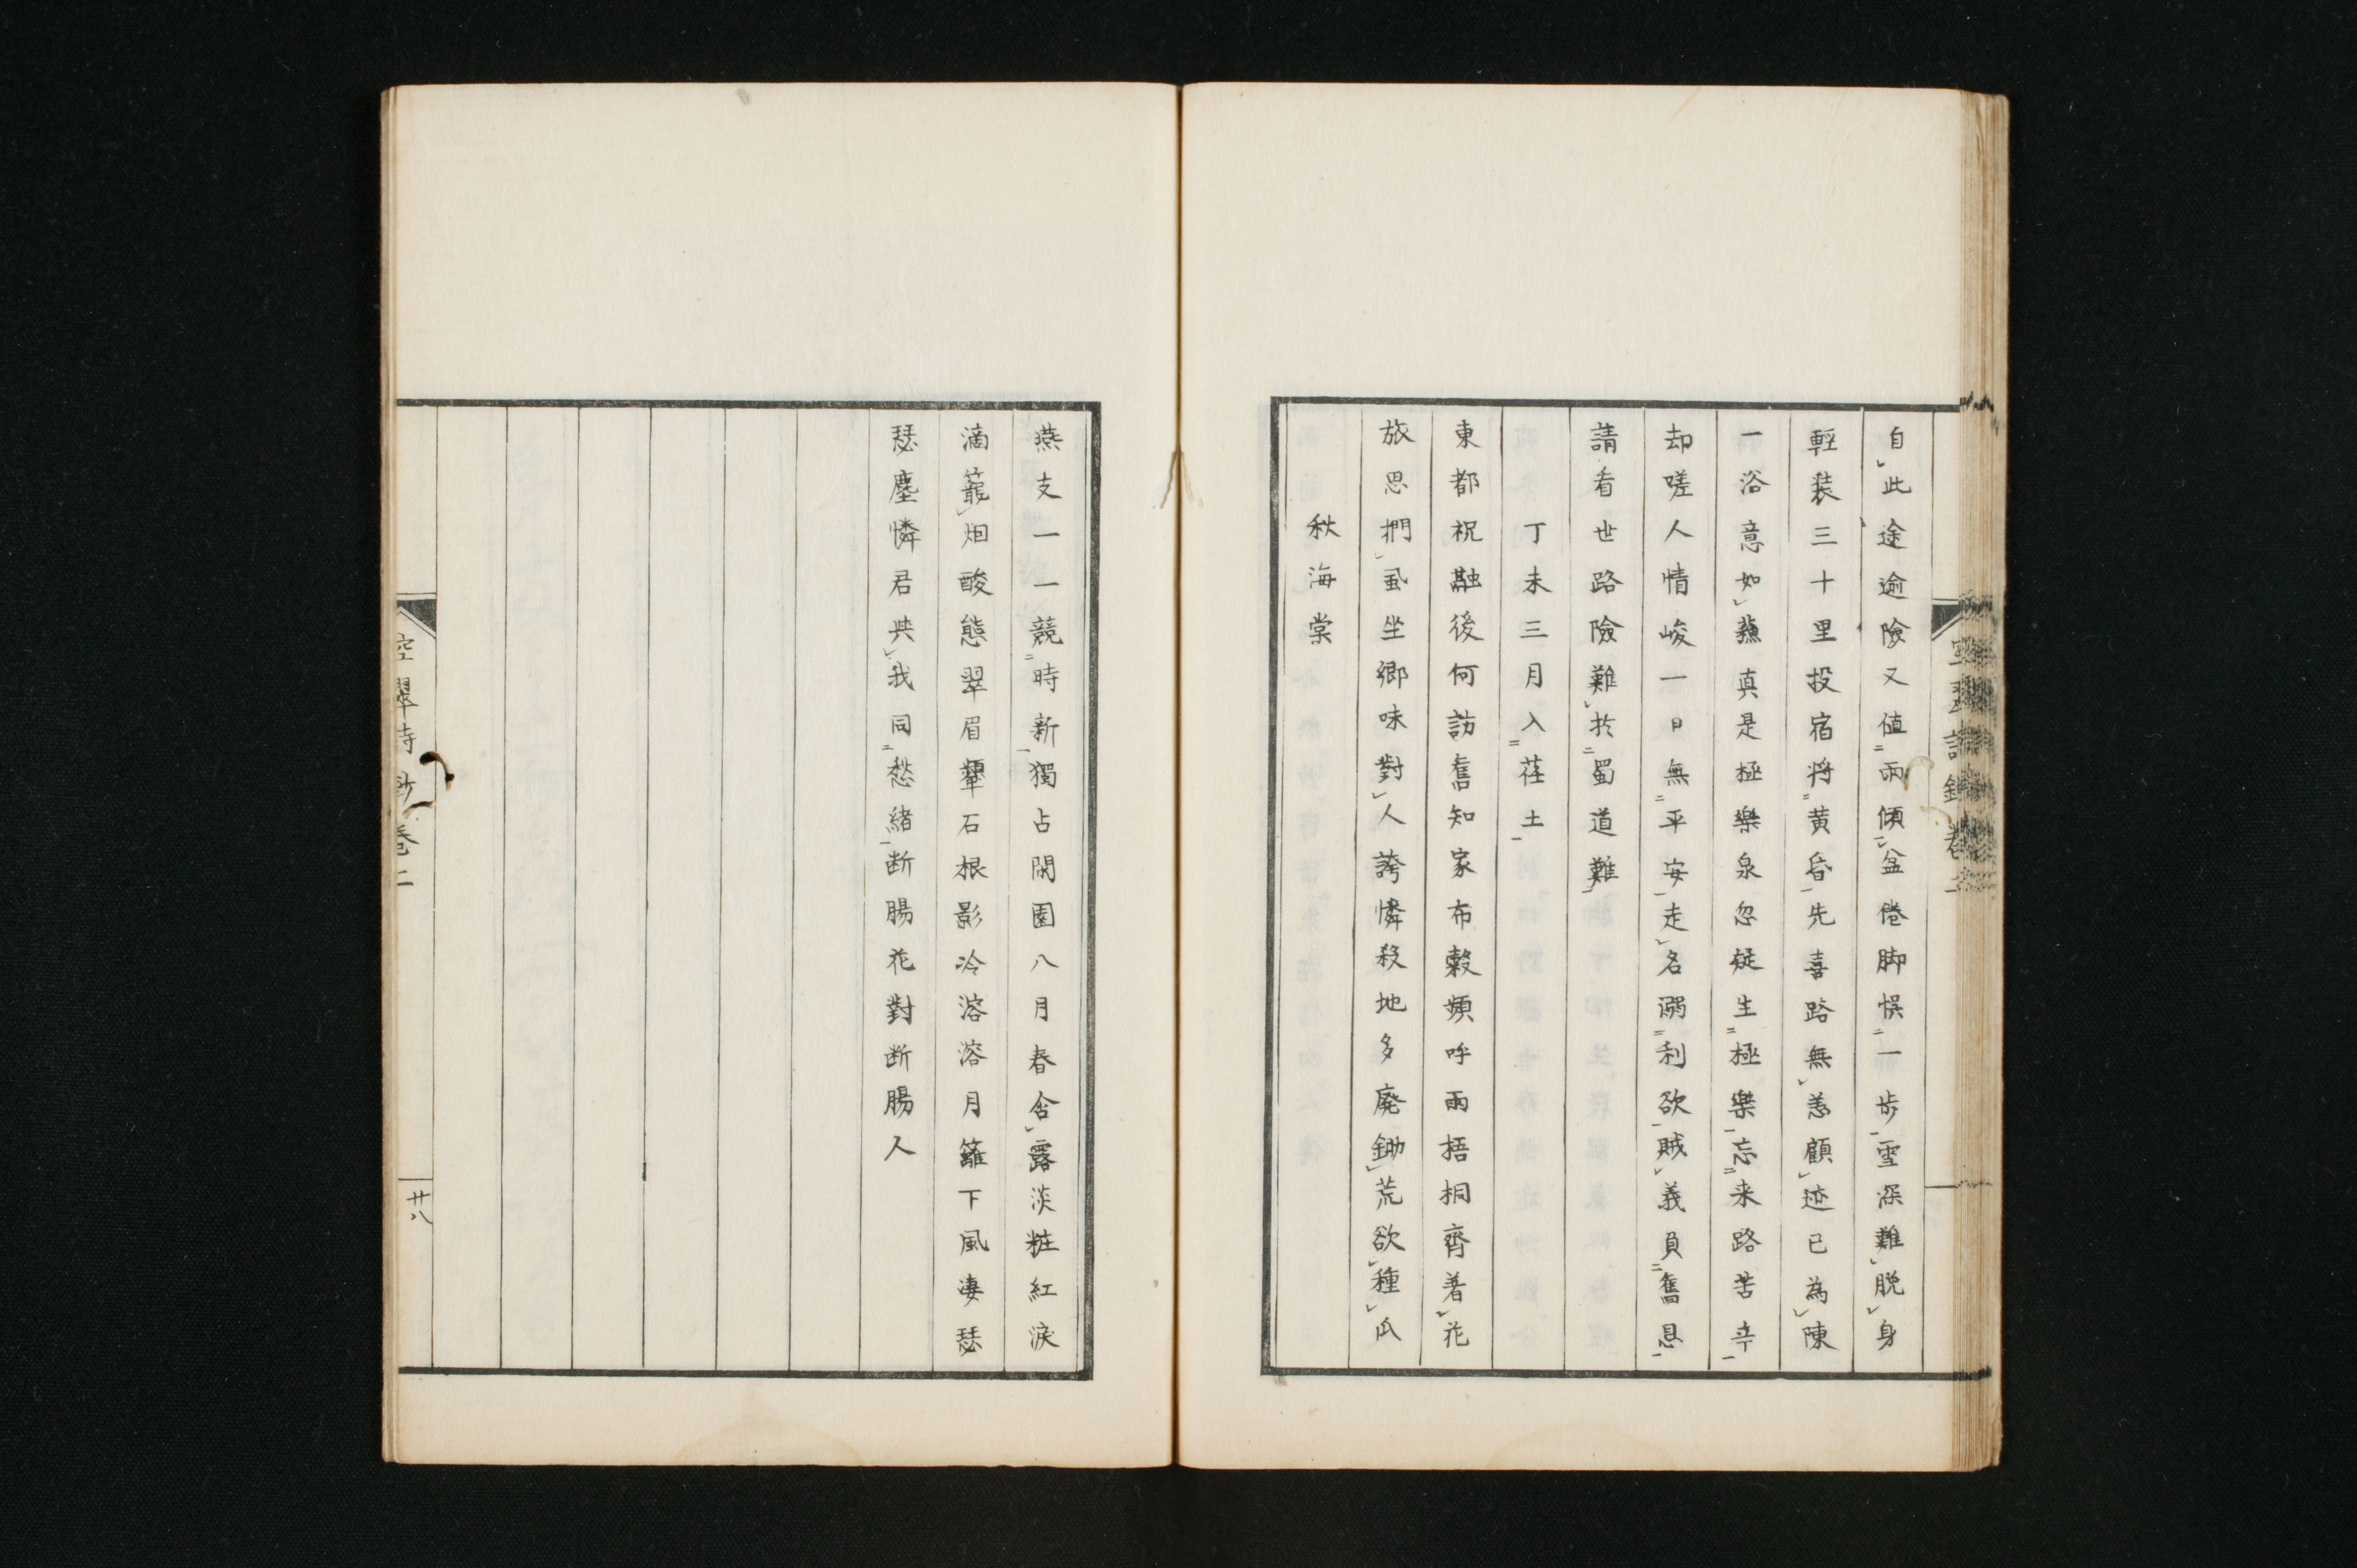 自此途逾險又値雨傾盆倦脚悞一步雪深難脱身
輕装三十里投宿将黄昏先喜路無恙顧迹已為陳
一浴意如蘓真是極樂泉忽疑生極樂忘来路苦辛
却嗟人情峻一日無平安走名溺利欲賊義負舊恩
請看世路險難於蜀道難
丁未三月入荏土
東都祝融後何訪舊知家布穀頻呼雨梧桐齊着花
旅思捫虱坐郷味對人誇憐殺地多廃鋤荒欲種瓜
秋海棠
燕支一一競時新獨占閑園八月春含露淡粧紅淚
滴籠烟酸態翠眉顰石根影冷溶溶月籬下風凄瑟
瑟塵憐君共我同愁緒断腸花對断腸人
空翠詩鈔巻二
廿八